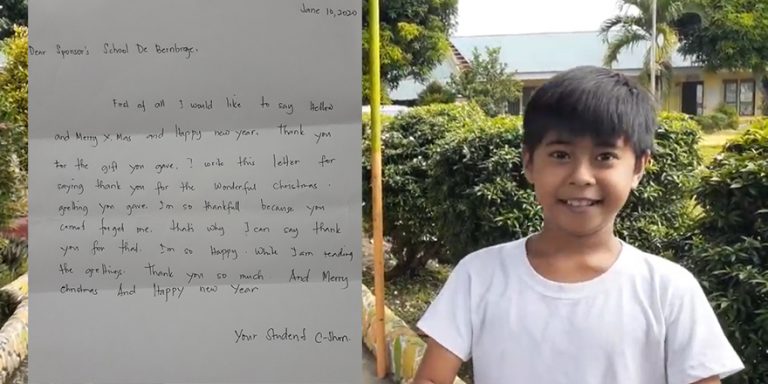 June 10, 2020
Dear Sponsor's School De Bernbroge.
Fest of all I would like to say Hellow
and Merry X. Mas and Happy new year. Thank you
for the gift you gave. I write this letter for
saying thank you for the wonderful christmas.
greiting you gave. I'm so thankfull because you
cannot forget me. that's why I can say thank
you for that. I'm so Happy. While I am reading
the greitings. Thank you so much. And Merry
christmas And Happy new Year
Your Student C-Jhon.